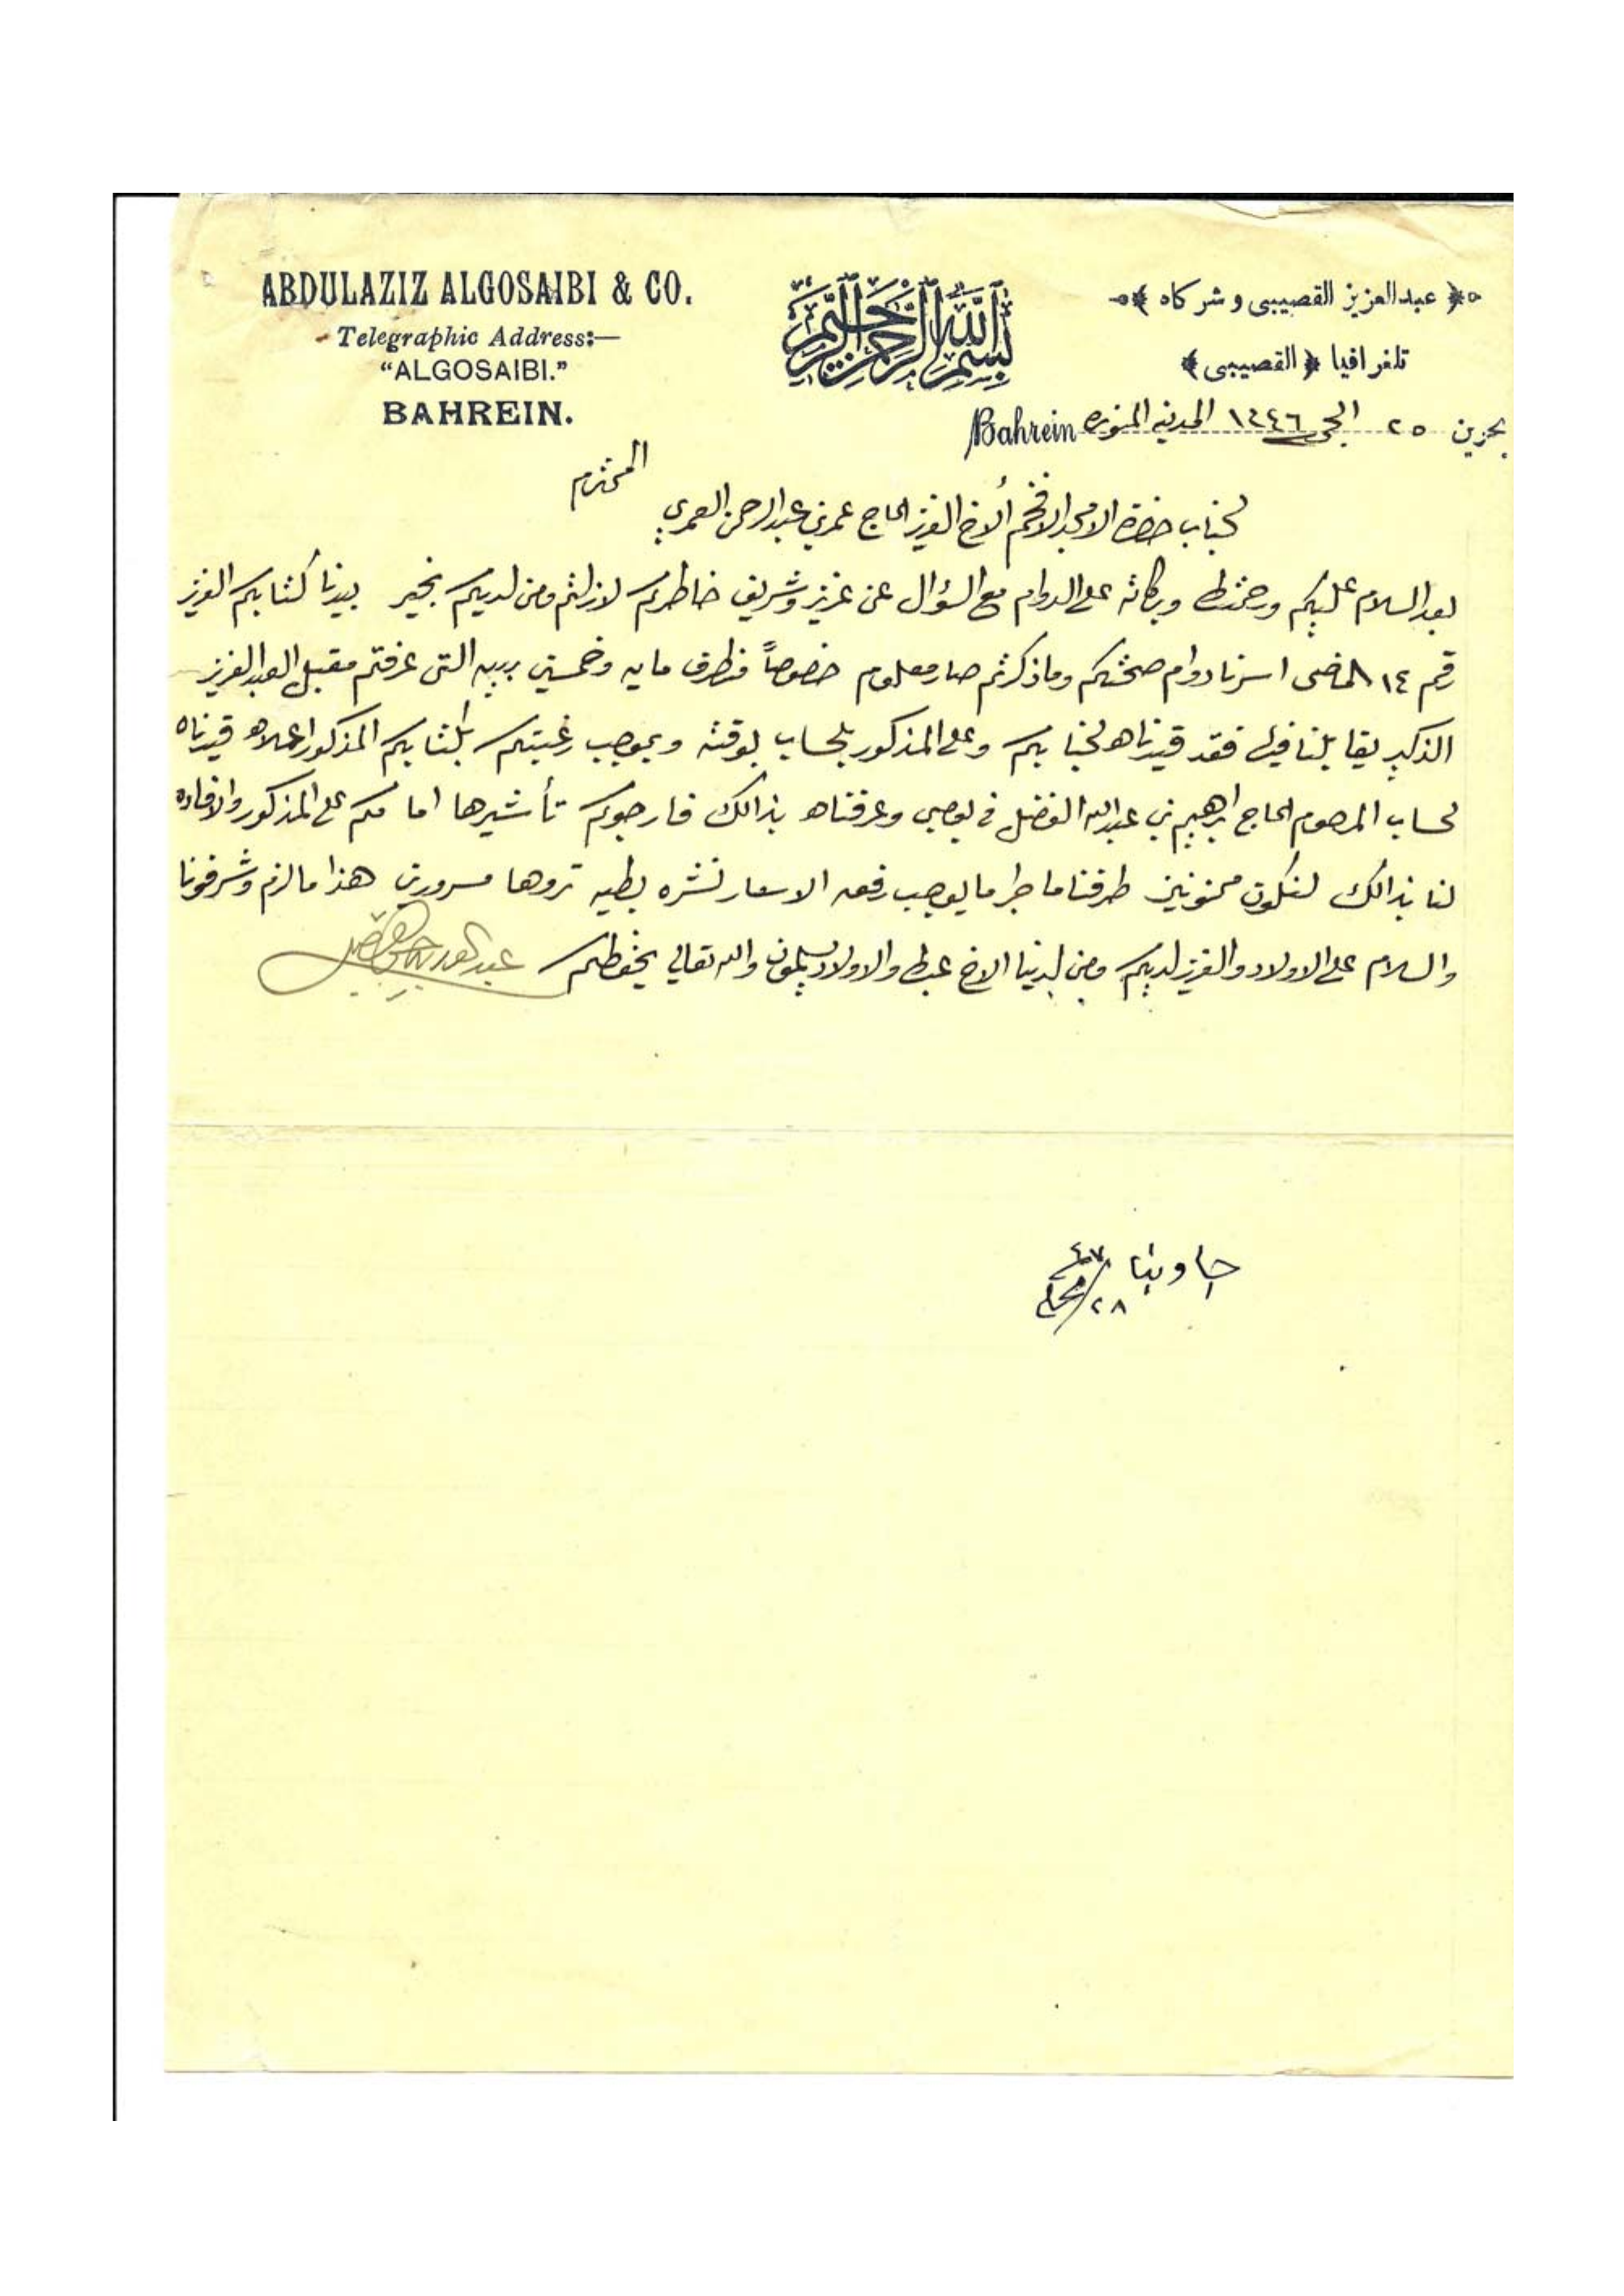 ABDULAZIZ ALGOSAIBI & CO.
Telegraphic Address:—
“ALGOSAIBI.”
BAHREIN.
بسم الله الرحمن الرحيم
عبدالعزيز القصيبى وشركاه
تلغرافيا ﴿القصيبى﴾
بحرين ٢٥ الحجه ١٣٤٦ المدينه المنوره Bahrein
المحترم
لجناب حضرة الامجد الافخم ألاخ العزيز الحاج عمر بن عبدالرحمن العمري
بعد السلام عليكم ورحمة الله وبركاته على الدوام مع السؤال عن عزيز وشريف خاطركم لازلتم ومن لديكم بخير بيدنا كتابكم العزيز
رقم ١٤ الماضى اسرنا دوام صحتكم وماذكرتم صار معلوم خصوصاً فنطرف مايه وخمسين ربيه التى عرفتم مقبل العبدالعزيز
الذكير يقابلنا فيها فقد قيدناها لجنابكم وعلى المذكور بلحساب بوقته وبموجب رغبتكم بكتابكم المذكور اعلاه قيدناه
لحساب المرحوم الحاج ابرهيم بن عبدالله الفضل في بومبي وعرفناه بذالك فارجوكم تأشيرها اما منكم على المذكور والافاده
لنا بذالك لنكون ممنونين طرفنا ما طرا ما يوجب رفعه الاسعار نشره بطيه تروها مسرورين هذا مالزم وشرفونا
والسلام على الاولاد والعزيز لديكم ومن لدينا الاخ عبدالله والاولاد يسلمون والله تعالي يحفظكم
جاوبنا ٤٧
٢٨ محرم